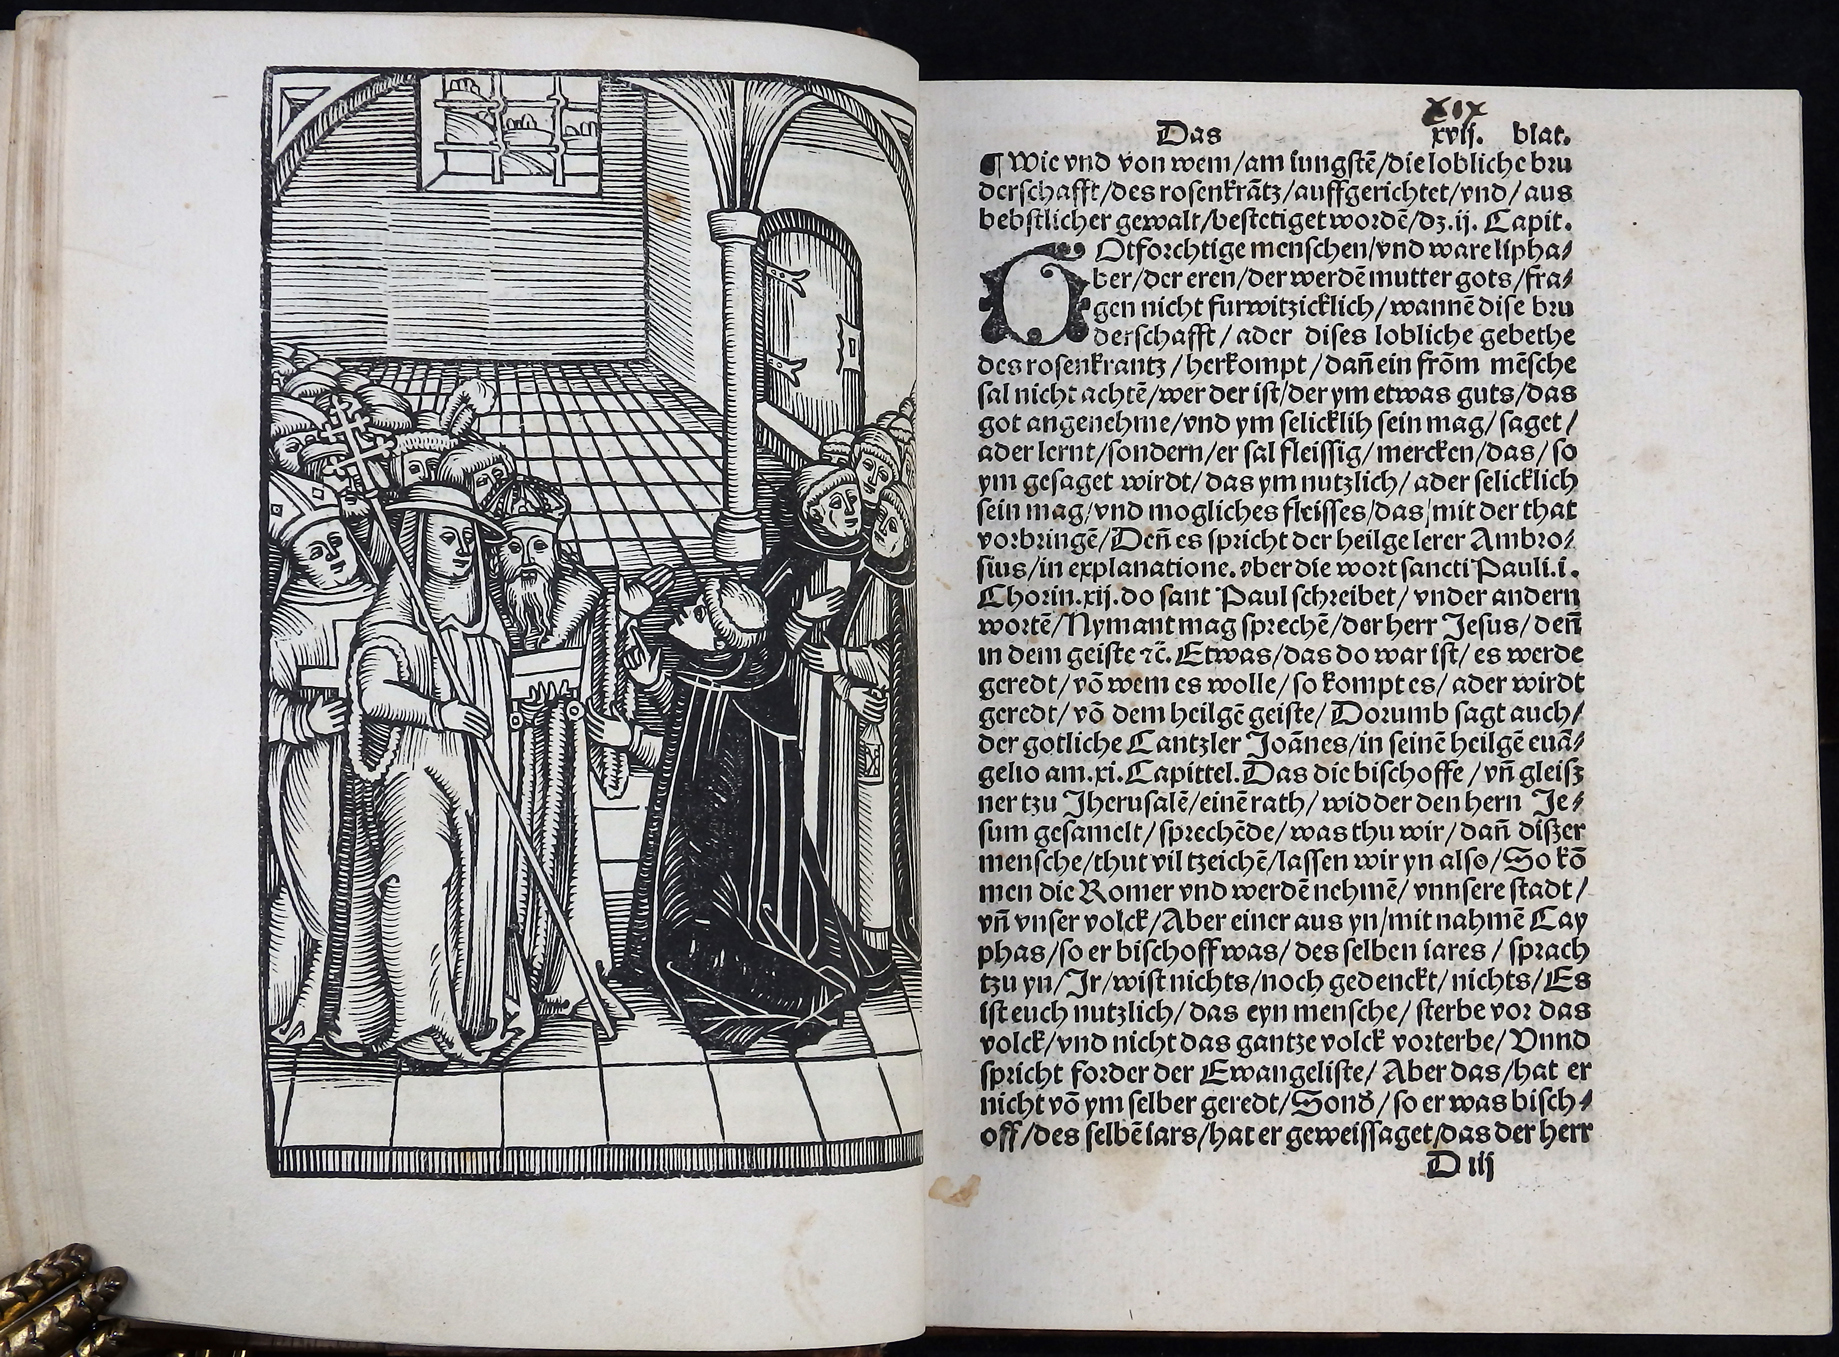 XIX
Das xvij. blat.
¶ Wie vnd von wem/am iungstē/die lobliche bru
derschafft/des rosenkrātz/auffgerichtet/vnd/aus
bebstlicher gewalt/bestetiget wordē/dz.ij. Capit.
GOtforchtige menschen/vnd ware lipha⸗
ber/der eren/der werdē mutter gots/fra⸗
gen nicht furwitzicklich/wannē dise bru
derschafft/ader dises lobliche gebethe
des rosenkrantz/herkompt/dañ ein frōm mēsche
sal nicht achtē/wer der ist/der ym etwas guts/das
got angenehme/vnd ym selicklih sein mag/saget/
ader lernt/sondern/er sal fleissig/mercken/das/so
ym gesaget wirdt/das ym nutzlich/ader selicklich
sein mag/vnd mogliches fleisses/das/mit der that
vorbringē/Deñ es spricht der heilge lerer Ambro⸗
sius/in explanatione. vber die wort sancti Pauli.i.
Chorin.xij.do sant Paul schreibet/vnder andern
wortē/Nymant mag sprechē/der herr Jesus/deñ
in dem geiste ⁊c̄. Etwas/das do war ist/es werde
geredt/vō wem es wolle/so kompt es/ader wirdt
geredt/vō dem heilgē geiste/Dorumb sagt auch/
der gotliche Cantzler Joānes/in seinē heilgē euā⸗
gelio am.xi.Capittel.Das die bischoffe/vñ gleisz
ner tzu Jherusalē/einē rath/widder den hern Je⸗
sum gesamelt/sprechēde/was thu wir/dañ diszer
mensche/thut vil tzeichē/lassen wir yn also/So kō
men die Romer vnd werdē nehmē/vnnsere stadt/
vñ vnser volck/Aber einer aus yn/mit nahmē Cay
phas/so er bischoff was/des selben iares/sprach
tzu yn/Jr/wist nichts/noch gedenckt/nichts/Es
ist euch nutzlich/das eyn mensche/sterbe vor das
volck/vnd nicht das gantze volck vorterbe/Vnnd
spricht forder der Ewangeliste/Aber das/hat er
nicht vō ym selber geredt/Sonď/so er was bisch⸗
off/des selbē iars/hat er geweissaget/das der herr
D iij